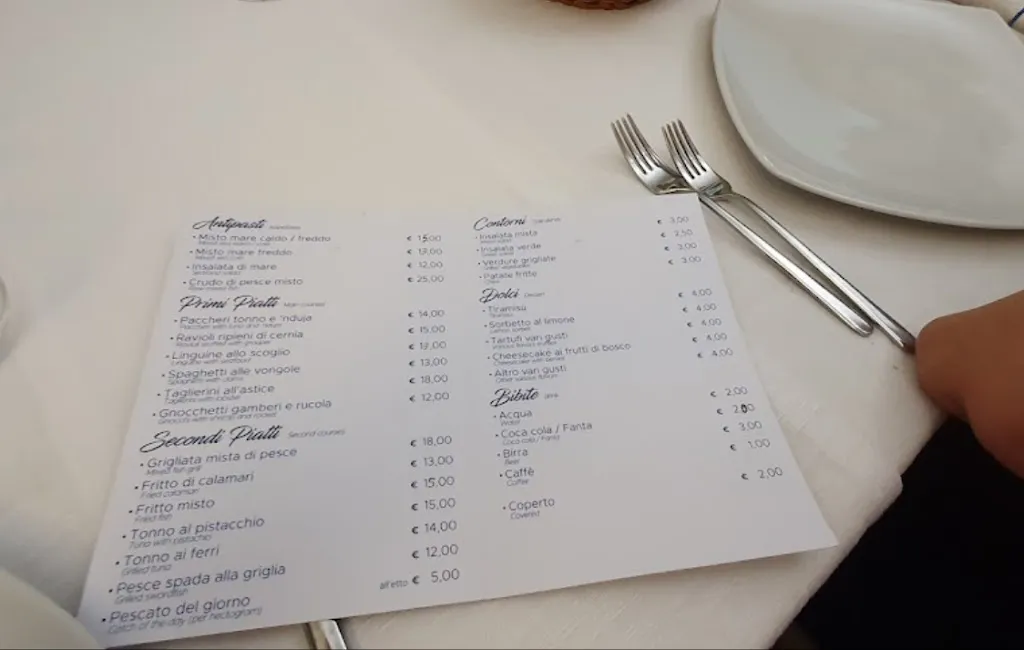 Antipasti
• Misto mare caldo / freddo € 15,00
• Misto mare freddo € 12,00
• Insalata di mare € 12,00
• Crudo di pesce misto € 25,00
Raw mixed fish
Primi Piatti Main courses
• Paccheri tonno e 'nduja € 14,00
Paccheri with tuna and 'nduja
• Ravioli ripieni di cernia € 15,00
Ravioli stuffed with grouper
• Linguine allo scoglio € 12,00
Linguine with seafood
• Spaghetti alle vongole € 13,00
Spaghetti with clams
• Taglierini all'astice € 18,00
Taglierini with lobster
• Gnocchetti gamberi e rucola € 12,00
Gnocchi with shrimp and rocket
Secondi Piatti Second courses
• Grigliata mista di pesce € 18,00
Mixed fish grill
• Fritto di calamari € 13,00
Fried calamari
• Fritto misto € 15,00
Fried fish
• Tonno al pistacchio € 15,00
Tuna with pistachio
• Tonno ai ferri € 14,00
Grilled tuna
• Pesce spada alla griglia € 12,00
Grilled swordfish
• Pescato del giorno all'etto € 5,00
Catch of the day (per hectogram)
Contorni
• Insalata mista € 3,00
• Insalata verde € 2,50
• Verdure grigliate € 3,00
• Patate fritte € 3,00
Dolci Dessert
• Tiramisù € 4,00
• Sorbetto al limone € 4,00
• Tartufi vari gusti € 4,00
• Cheesecake ai frutti di bosco € 4,00
Cheesecake with berries
• Altro vari gusti € 4,00
Bibite
• Acqua € 2,00
Water
• Coca cola / Fanta € 2,00
Coca cola / Fanta
• Birra € 3,00
Beer
• Caffè € 1,00
Coffee
• Coperto € 2,00
Covered